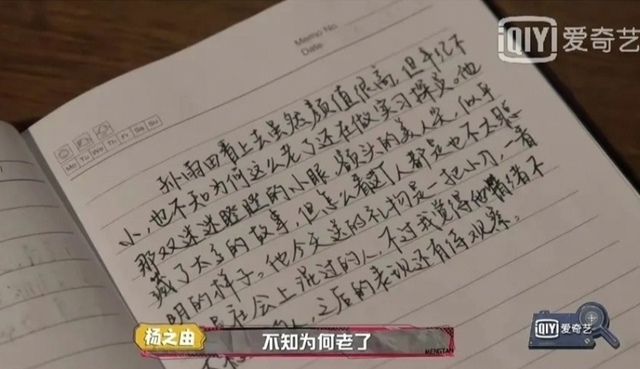 iQIYI 爱奇艺
Memo No.
Date
Mo Tu We Th Fr Sa Su
孙雨田看上去虽然颜值很高,但年纪不
小,也不知为何这么老了还在做实习探员。他
那双迷迷瞪瞪的小眼,额头的美人尖,似乎
藏了太多的故事,但怎么看这人都是也不太聪
明的样子。他今天送的礼物是一把小刀,一看
是社会上混过的人,不过我觉得他情绪不
人,之后的表现还有待观察。
杨之由
不知为何老了
MENGTAN
iQIYI 爱奇艺